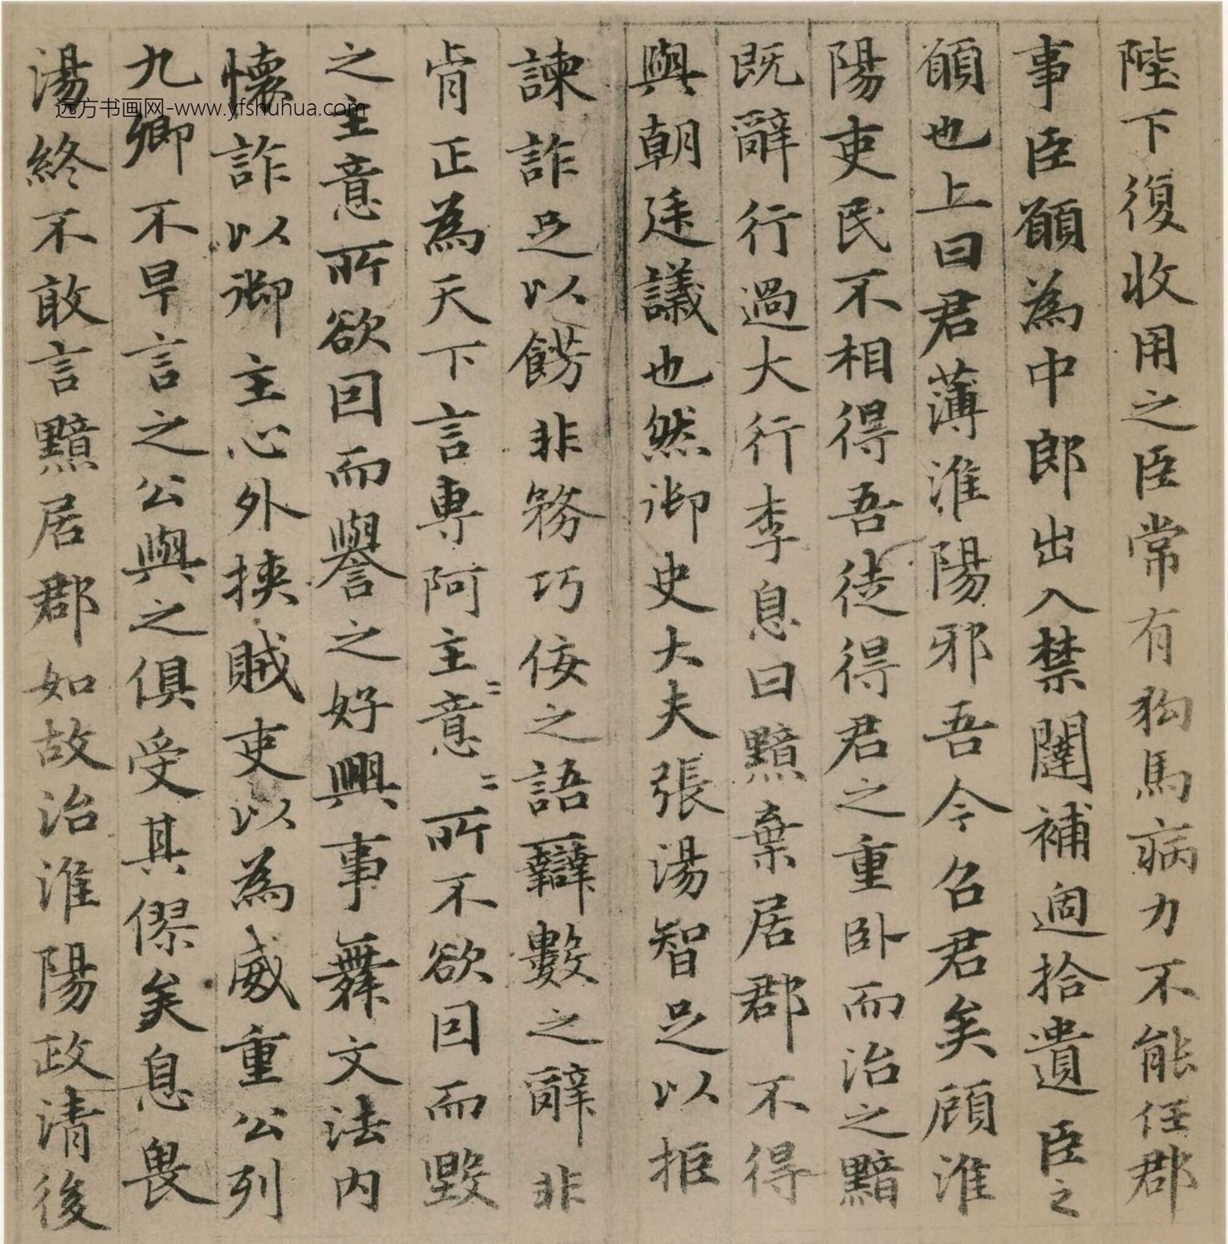 陛下復收用之臣常有狗馬病力不能任郡
事臣願為中郎出入禁闥補過拾遺臣之
願也上曰君薄淮陽邪吾今召君矣顧淮
陽吏民不相得吾徒得君之重卧而治之黯
既辭行過大行李息曰黯棄居郡不得
與朝廷議也然御史大夫張湯智足以拒
諫詐足以餝非務巧佞之語辯數之辭非
肯正為天下言專阿主意〻所不欲因而毀
之主意所欲因而譽之好興事舞文法內
懷詐以御主心外挾賊吏以為威重公列
九卿不早言之公與之俱受其僇矣息畏
湯終不敢言黯居郡如故治淮陽政清後
远方书画网-www.yfshuhua.com